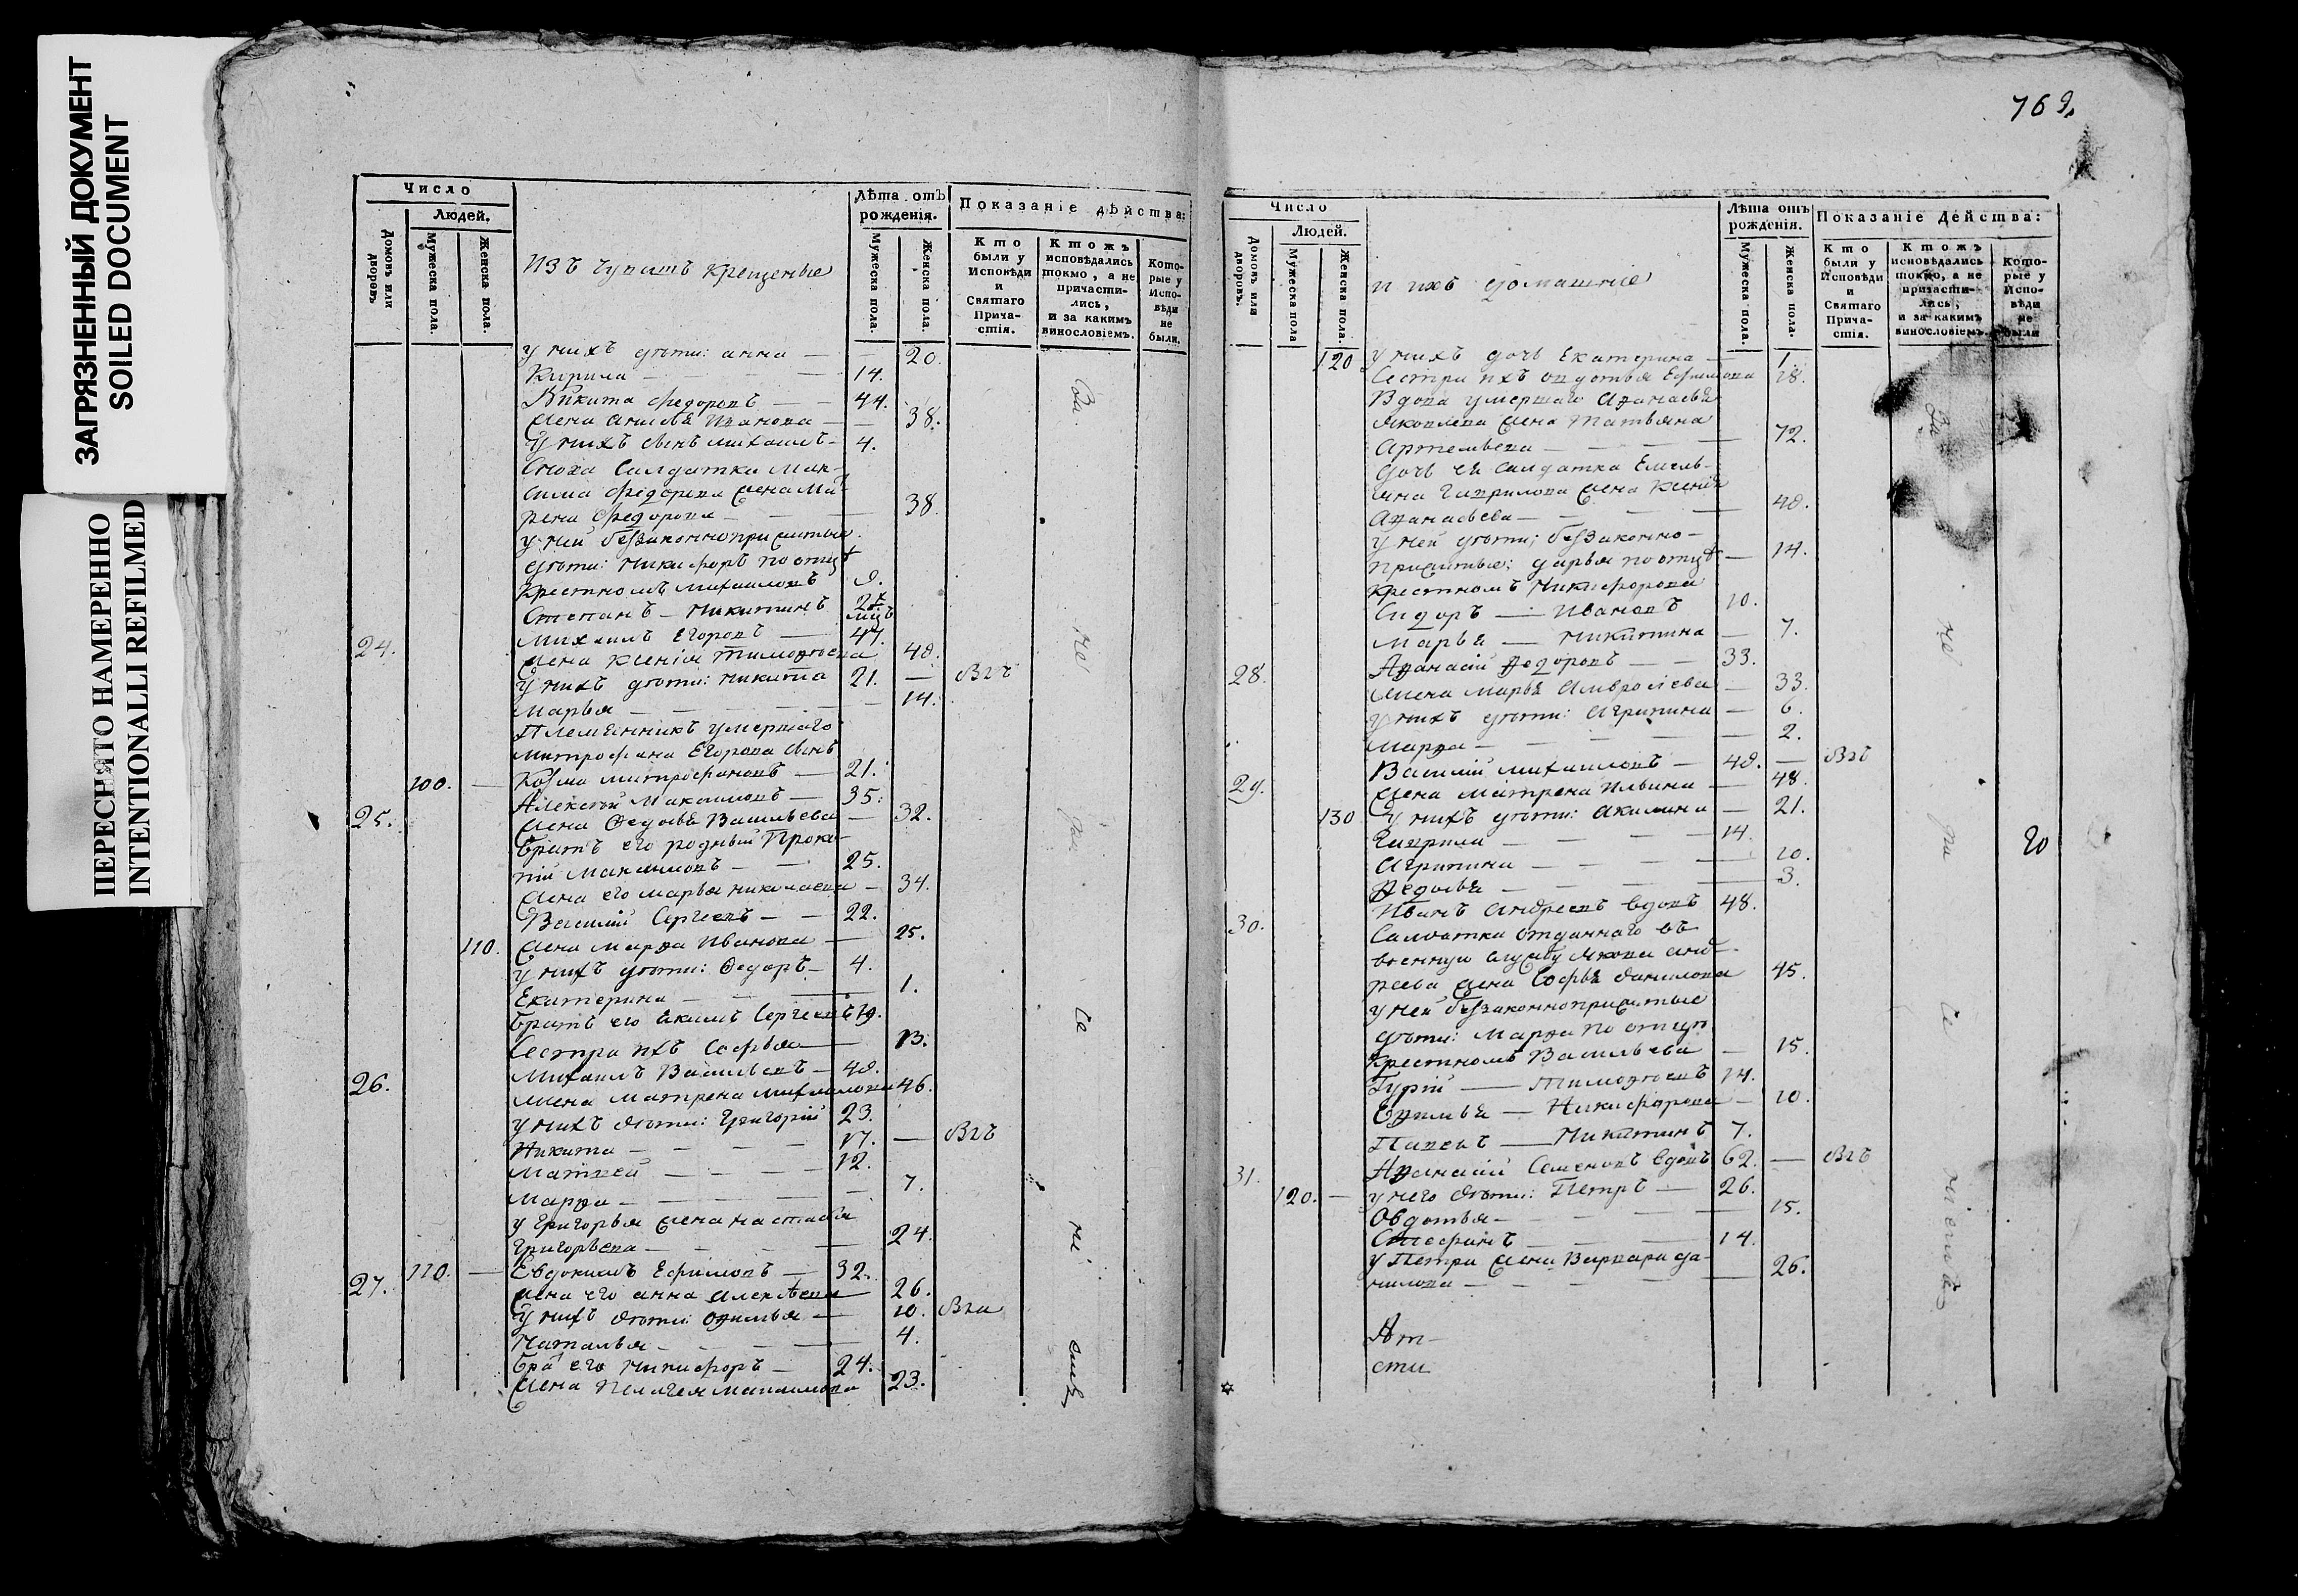 ЗАГРЯЗНЕННЫЙ ДОКУМЕНТ
SOILED DOCUMENT
ПЕРЕСНЯТО НАМЕРЕННО
INTENTIONALLI REFILMED
Число
Людей.
Домовъ или дворовъ
Мужеска пола.
Женска пола.
изъ чувашъ крещеные
Лѣта отъ рожденія.
Мужеска пола.
Женска пола.
Показаніе дѣйства:
Кто были у Исповѣди и Святаго Причастія.
Ктожъ исповѣдались токмо, а не причастились, и за какимъ винословіемъ.
Которые у Исповѣди не были.
у нихъ дѣти: анна — — 20.
Кирила — — 14.
Никита Федоровъ — — 44.
жена анисья Иванова — — 38.
У нихъ сынъ михаилъ — 4.
Сноха Салдатка Мак-
сима Федорова жена Мат-
рена Федорова — — 38.
у ней беззаконноприжитые
дѣти: никифоръ по отцѣ
крестномъ михаиловъ 9.
Степанъ — Никитинъ
мцъ
24. Михаилъ Егоровъ — 47.
жена Ксенія тимоѳеева 48.
у нихъ дѣти: никита 21. — Впъ
Марья — — — 14.
Племянникъ умершаго
митрофана Егорова сынъ
100. — Козма митрофановъ — 21.
25. Алексѣй Максимовъ — 35.
жена Ѳедосья Васильева — 32.
братъ его родный Проко-
пій Максимовъ — — 25.
жена его марья николаева — 34.
Василій Сергеевъ — — 22.
110. жена марѳа Иванова — 25.
у нихъ дѣти: Ѳедоръ — 4.
Екатерина — — 1.
братъ его Якимъ Сергеевъ 19.
Сестра ихъ Софья — 13.
26. Михаилъ Васильевъ — 48.
жена матрена михаилова 46.
у нихъ дѣти: Григорій 23.
Никита — — — 17. — Впъ
Матвей — — — 12.
Марѳа — — — — 7.
у Григорья жена настасья
Григорьева — — — 24.
27. 110. — Евдокимъ Ефимовъ — 32.
жена его анна алексѣева 26.
у нихъ дѣти: Офимья — 10. Впа
Наталья — — — 4.
бра его Никифоръ — 24.
жена пелагея максимова 23.
За не ра се ні емъ
769.
Число
Людей.
Домовъ или дворовъ.
Мужеска пола
Женска пола.
и ихъ домашніе
Лѣта отъ рожденія.
Мужеска пола.
Женска пола.
Показаніе Действа:
Кто были у Исповѣди и Святаго Причастія.
Ктожъ исповѣдались токмо, а не причастились, и за какимъ винословіемъ.
Которые у Исповѣди не были
120 у нихъ дочь Екатерина — 1.
Сестра ихъ овдотья Ефимова 18.
Вдова умершаго Аѳанасья
Яковлева жена Татьяна
Артемьева — — — 72.
дочь ея Салдатка Емель-
яна Гаврилова жена Ксенія
Аѳанасьева — — — 48.
у ней дѣти; беззаконно-
прижитые: дарья по отцѣ — 14.
крестномъ Никифорова
Сидоръ — Ивановъ 10.
марья — Никитина — 7.
28. Аѳанасій Ѳедоровъ — — 33.
жена марья Амвросіева — 33.
у нихъ дѣти: Агрипина — 6.
марѳа — — — — 2.
29. Василій михаиловъ — 48. — Впъ
жена матрена ильина — 48.
130 у нихъ дѣти: акилина — 21.
Гаврила — — — 14.
Агрипина — — — 10.
Ѳедосья — — — 3.
30. Иванъ андреевъ вдовъ 48.
Салдатка отданнаго въ
военную службу Якова анд-
реева жена Софья данилова 45.
у ней беззаконноприжитые
дѣти: Марѳа по отцѣ
крестномъ Васильева — 15.
Гурій — тимоѳеевъ 14.
Офимья — Никифорова — 10.
Павелъ — Никитинъ 7.
31. Аѳанасій Семеновъ вдовъ 62. — Впъ
120. — у него дѣти: Петръ — 26.
Овдотья — — — 15.
Стефанъ — — — 14.
у Петра жена Варвара да-
нилова — — — — 26.
За не ра се ніемъ
20
сти